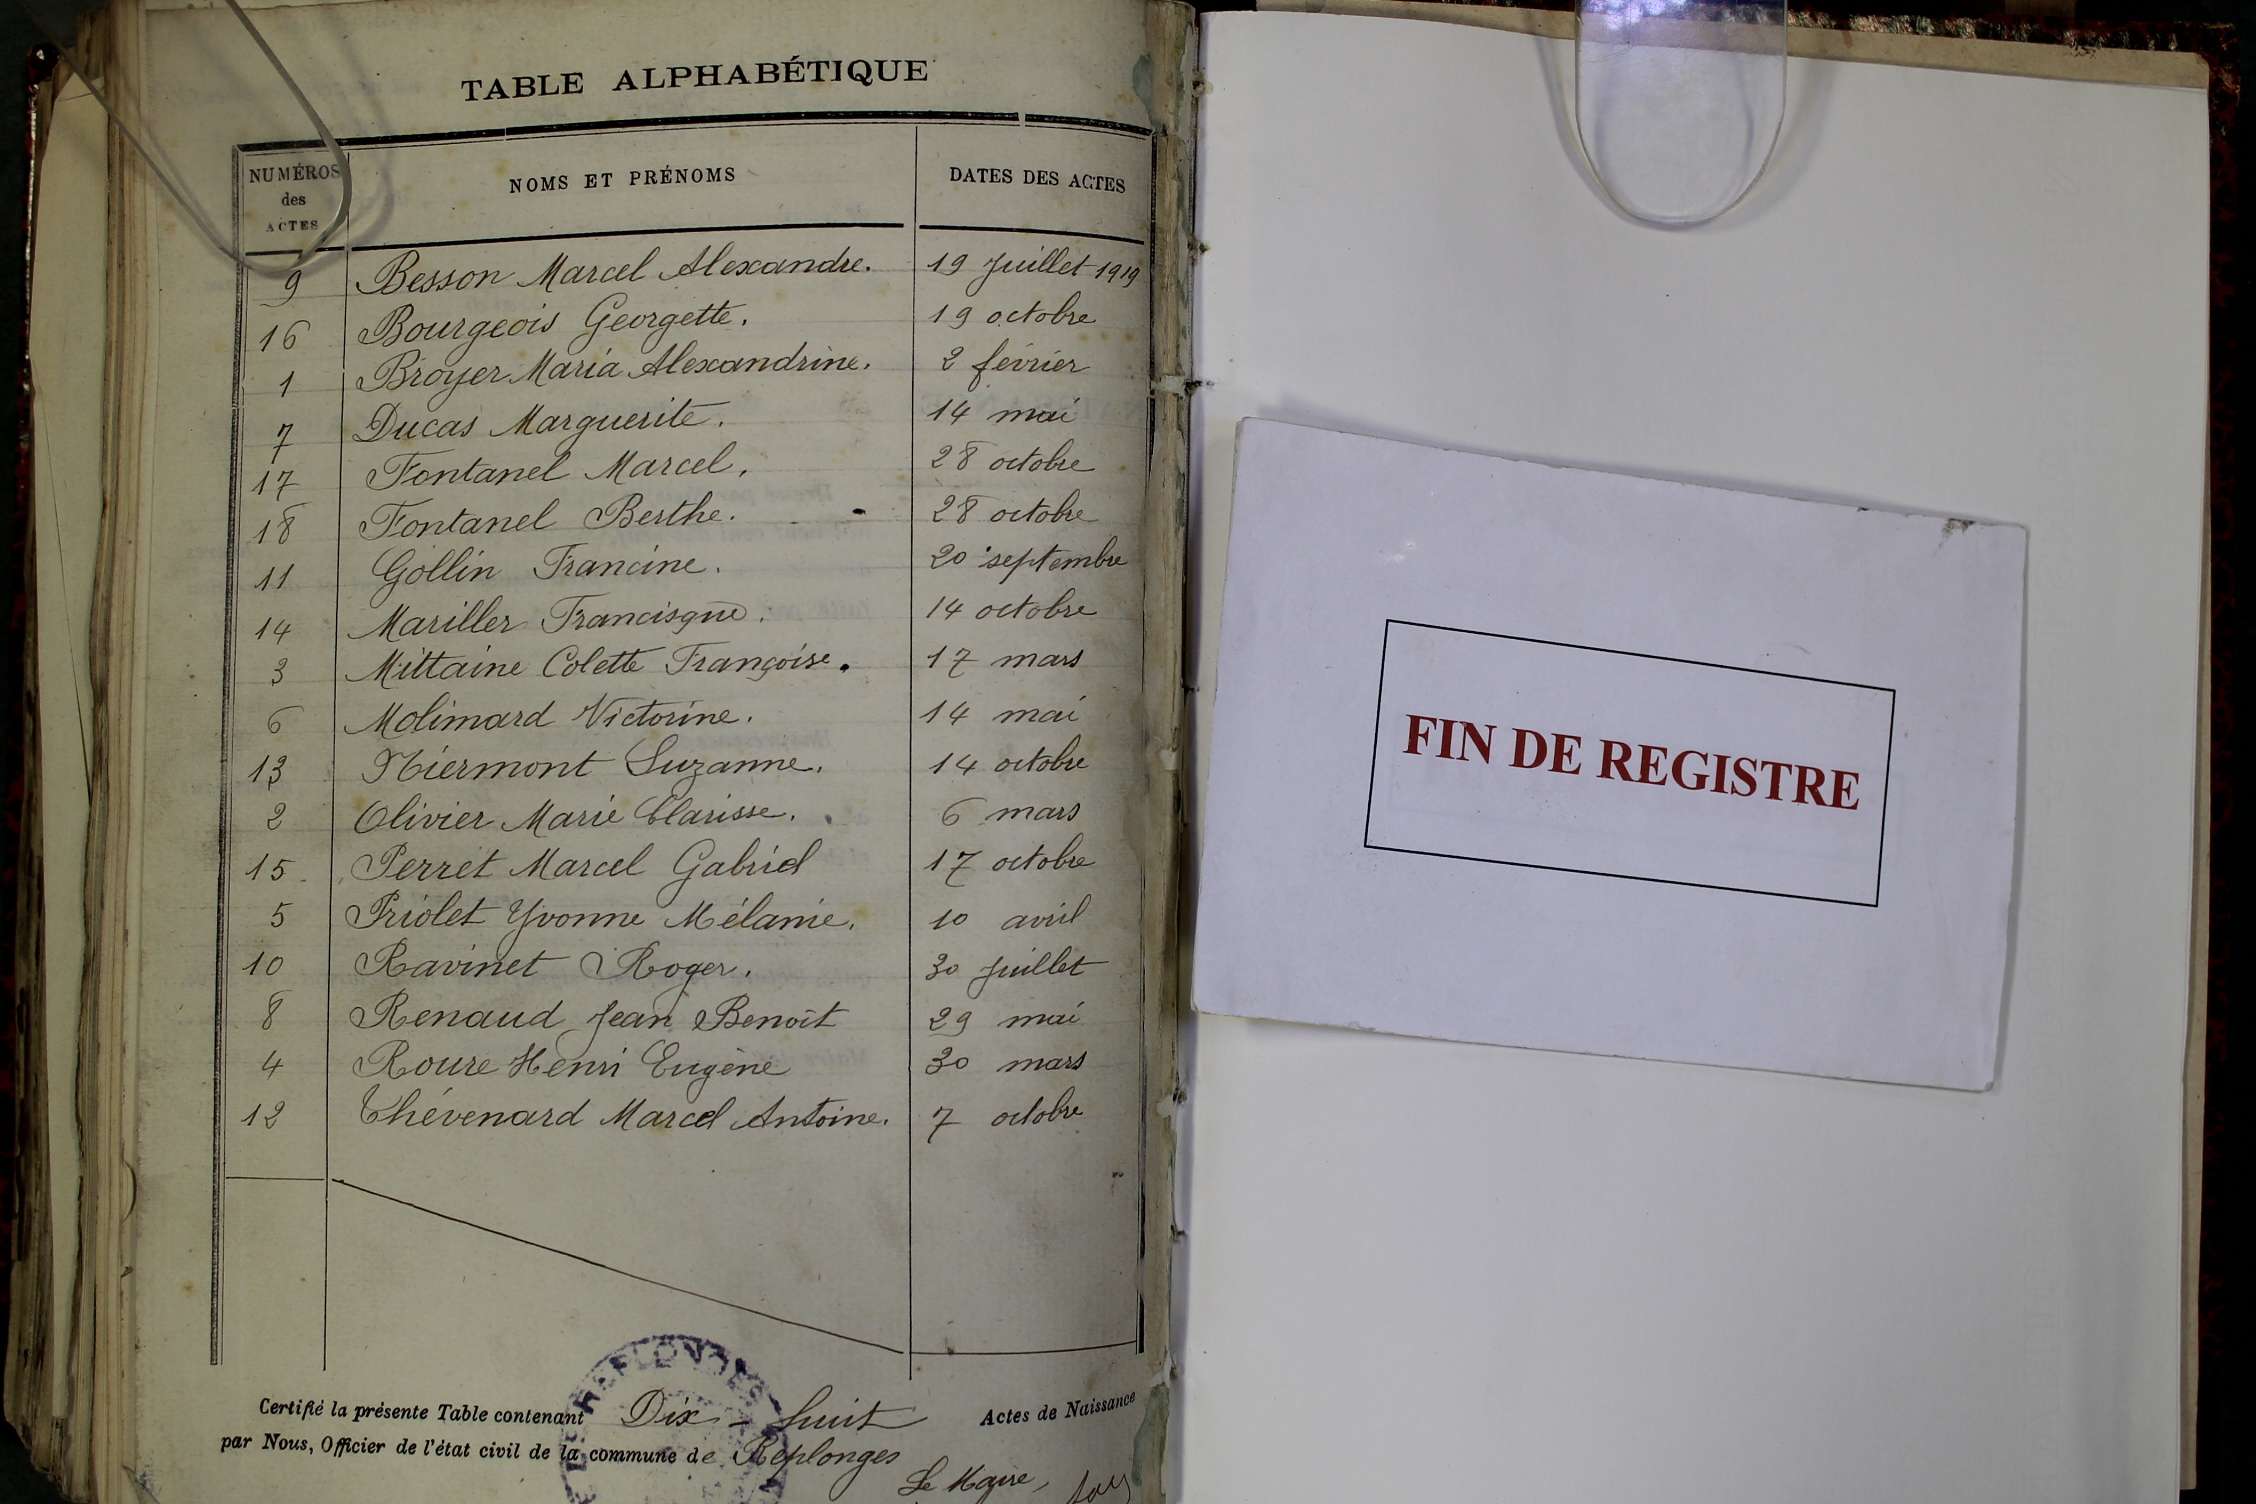 TABLE ALPHABÉTIQUE
NUMÉROS des ACTES NOMS ET PRÉNOMS DATES DES ACTES
9 Besson Marcel Alexandre. 19 Juillet 1919
16 Bourgeois Georgette. 19 octobre
1 Broyer Maria Alexandrine. 2 février
7 Ducas Marguerite. 14 mai
17 Fontanel Marcel. 28 octobre
18 Fontanel Berthe. 28 octobre
11 Gollin Francine. 20 septembre
14 Mariller Francisque. 14 octobre
3 Mittaine Colette Françoise. 17 mars
6 Molimard Victorine. 14 mai
13 Niermont Suzanne. 14 octobre
2 Olivier Marie Clarisse. 6 mars
15 Perret Marcel Gabriel 17 octobre
5 Priolet Yvonne Mélanie. 10 avril
10 Ravinet Roger. 30 Juillet
8 Renaud Jean Benoît 29 mai
4 Roure Henri Eugène 30 mars
12 Thévenard Marcel Antoine. 7 octobre
Certifié la présente Table contenant Dix-huit Actes de Naissance
par Nous, Officier de l'état civil de la commune de Replonges
Le Maire,
REPLONGES
FIN DE REGISTRE